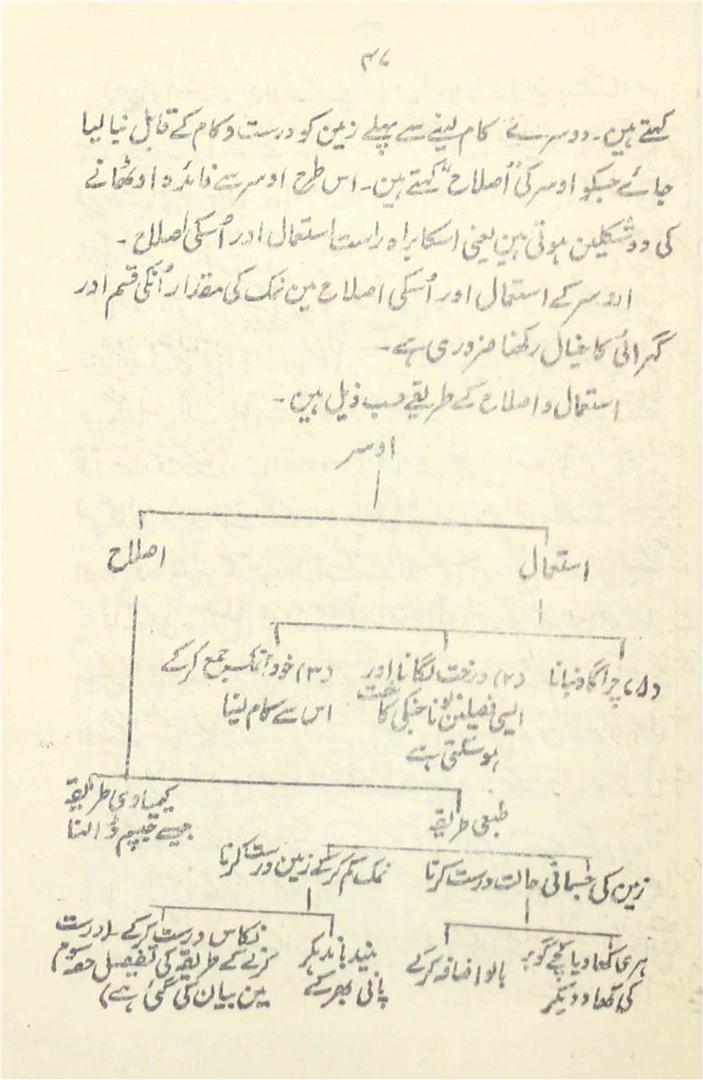 ۳۷
کہتے ہین۔ دوسرے کام لینے سے پہلے زمین کو درست و کام کے قابل بنا لیا
جائے جسکو اوسر کی "اصلاح" کہتے ہین۔ اس طرح اوسر سے فائدہ اوٹھانے
کی دو شکلین ہوتی ہین یعنی اسکا براہ راست استعمال اور اُسکی اصلاح۔
اوسر کے استعمال اور اُسکی اصلاح مین نمک کی مقدار اُنکی قسم اور
گہرائی کا خیال رکھنا ضروری ہے۔
استعمال و اصلاح کے طریقے حسب ذیل ہین۔
اوسر
استعمال
اصلاح
(۱) چراگاہ بنانا
(۲) درخت لگانا اور
ایسی فصلین بونا جنکی کاشت
ہو سکتی ہے
(۳) خود نمک جمع کرکے
اس سے کام لینا
طبعی طریقہ
کیمیاوی طریقہ
جیسے جپسم ڈالنا
زمین کی جسمانی حالت درست کرنا
نمک کم کرکے زمین درست کرنا
ہری کھاد یا کچے گوبر
کی کھاد دیکر
بالو اضافہ کرکے
بند باندھکر
پانی بھرکے
نکاس درست کرکے۔ (درست
کرنے کے طریقہ کی تفصیل حصہ
مین بیان کی گئی ہے)